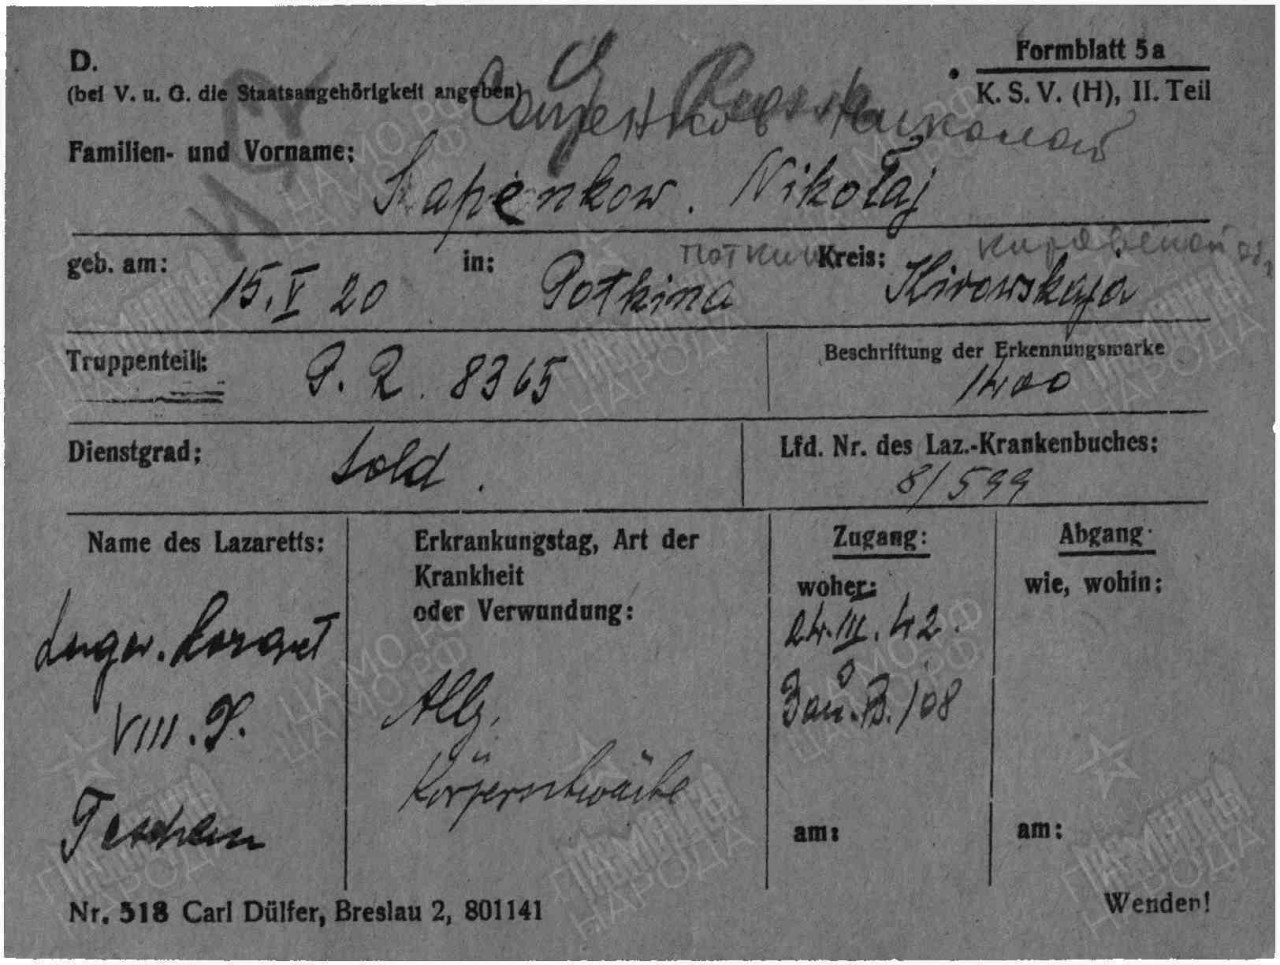 D.
(bei V. u. G. die Staatsangehörigkeit angeben)
Formblatt 5a
K. S. V. (H), II. Teil
Николай
Familien- und Vorname: Sapenkow. Nikołaj
geb. am: 15. V 20 in: Potkina Kreis: Kirowskaja
Truppenteil: 8365
Beschriftung der Erkennungsmarke
1400
Dienstgrad: Sold.
Lfd. Nr. des Laz.-Krankenbuches:
8/599
Name des Lazaretts:
Erkrankungstag, Art der
Krankheit
oder Verwundung:
Zugang:
woher:
Abgang
wie, wohin:
Lager. Lazaret
VIII.
Teschen
Allg.
Körperschwäche
24. III. 42.
Bau. B. 108
am:
am:
Nr. 518 Carl Dülfer, Breslau 2, 801141
Wenden!
ЦАМО РФ
ПАМЯТЬ
НАРОДА